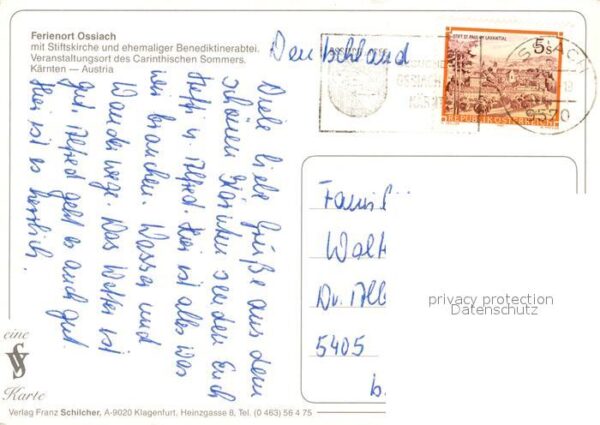 Ferienort Ossiach
mit Stiftskirche und ehemaliger Benediktinerabtei.
Veranstaltungsort des Carinthischen Sommers.
Kärnten — Austria
Deutschland
STIFT ST. PAUL IM LAVANTTAL
5s
REPUBLIK ÖSTERREICH
OSSIACH
9570
Viele liebe Grüße aus dem
schönen Kärnten senden Euch
u. Alfred. Hier ist alles was
wir brauchen. Wasser und
Wanderwege. Das Wetter ist
gut. Alfred geht es auch gut.
Hier ist es herrlich.
Famil
Walt
Dr. Alb
5405
b.
privacy protection
Datenschutz
eine
Karte
Verlag Franz Schilcher, A-9020 Klagenfurt, Heinzgasse 8, Tel. (0 463) 56 4 75